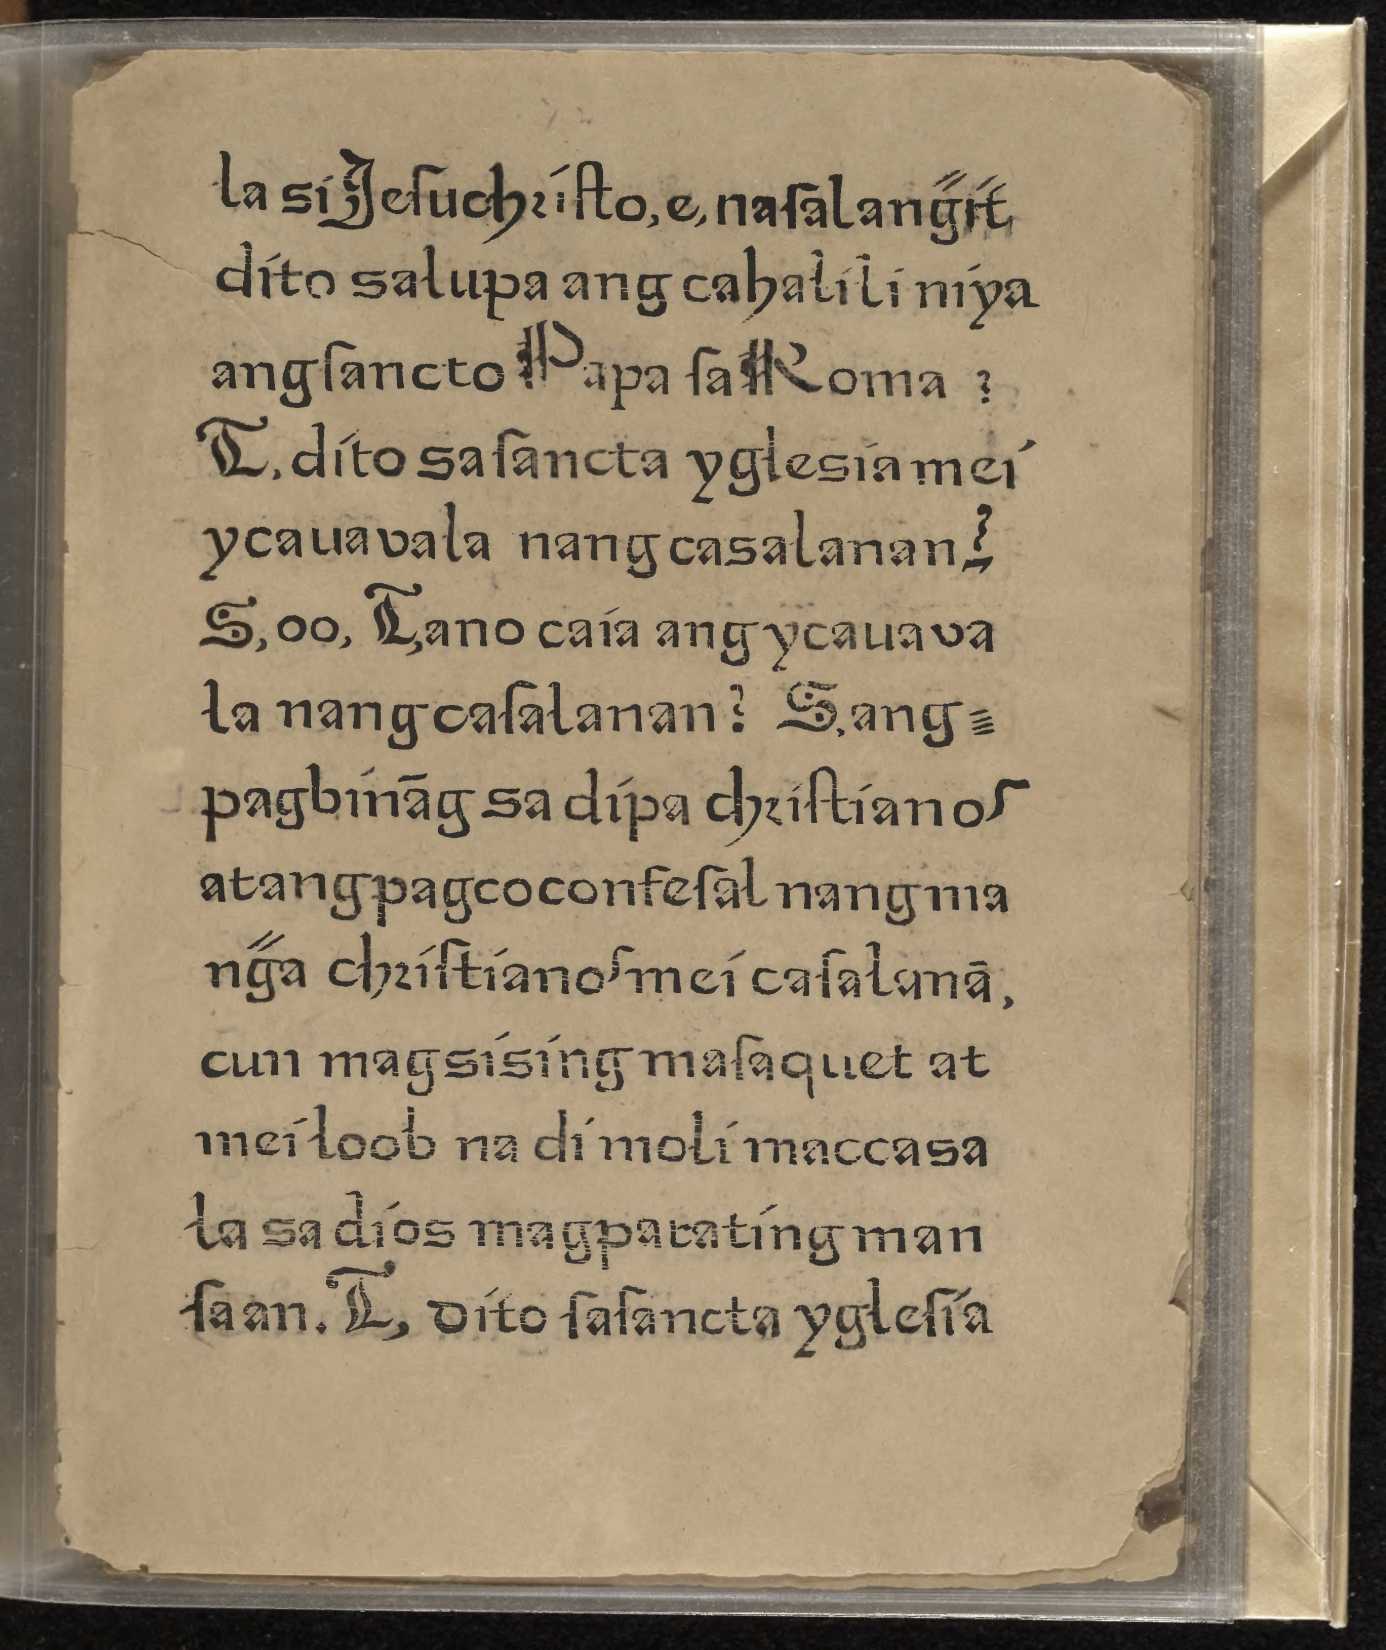 la si Jesuchꝛiſto, e, naſa lang̃it
dito sa lupa ang cahalili niya
ang ſancto Papa ſa Roma ?
T, dito sa ſancta yglesia mei
ycauavala nang casalanan?
S, oo, T, ano caia ang ycauava
la nang caſalanan? S, ang
pagbinãg sa dipa chꝛiſtianoſ
at ang pagcoconfeſal nang ma
ng̃a chꝛiſtianoſ mei caſalanã,
cun magsising maſaquet at
mei loob na di moli maccasa
la sa dios magparating man
ſaan. T, dito ſa ſancta ygleſia